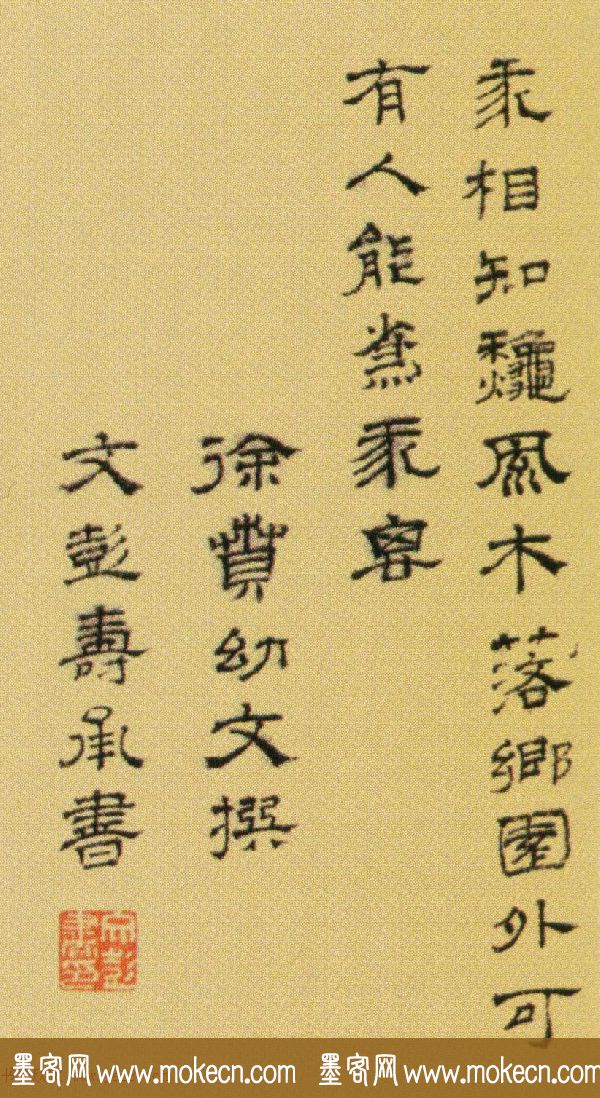 相知龝風木落鄉園外可
有人能
徐賁幼文撰
文彭壽承書
文彭
墨客网 www.mokecn.com 墨客网 www.mokecn.com